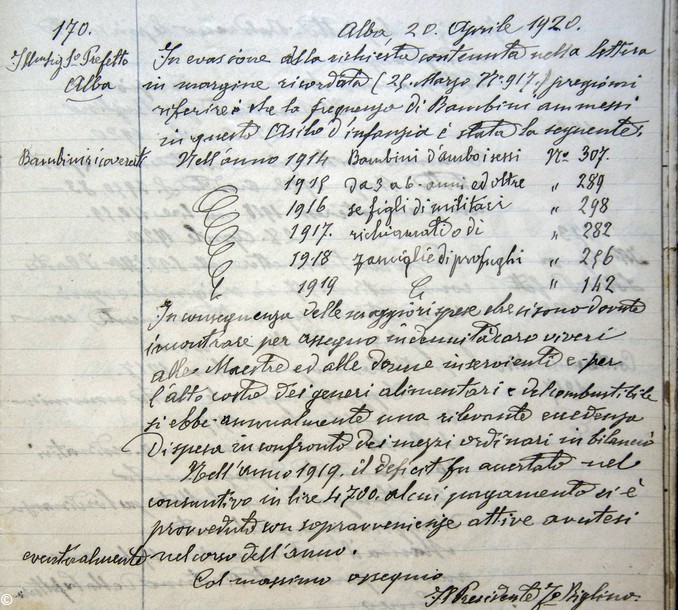 170.
Alba 20. Aprile 1920.
Illustrig. So. Prefetto
Alba
In evasione alla richiesta contenuta nella lettera
in margine ricordata (25. Marzo No. 917.) pregiomi
riferire che la frequenza di Bambini ammessi
in questo Asilo d'infanzia è stata la seguente.
Bambini ricoverati
Nell'anno 1914 Bambini d'ambo i sessi No. 307.
1915 da 3 a 6. anni ed oltre " 289
1916 se figli di militari " 298
1917. richiamati o di " 282
1918 famiglie di profughi " 256
1919 " 142
In conseguenza delle maggiori spese che si sono dovute
incontrare per assegno indennità caro viveri
alle Maestre ed alle donne inservienti e per
l'alto costo dei generi alimentari e del combustibile
si ebbe annualmente una rilevante eccedenza
Di spesa in confronto dei mezzi ordinari in bilancio
Nell'anno 1919. il deficit fu accertato nel
consuntivo in lire 4700. al cui pagamento si è
provveduto con sopravvenienze attive avutesi
eventualmente nel corso dell'anno.
Col massimo ossequio
Il Presidente Fo. Biglino.
©